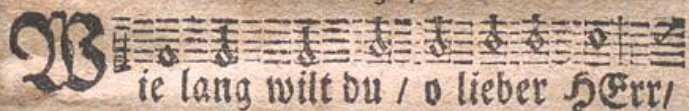 Wie lang wilt du / o lieber HErr/